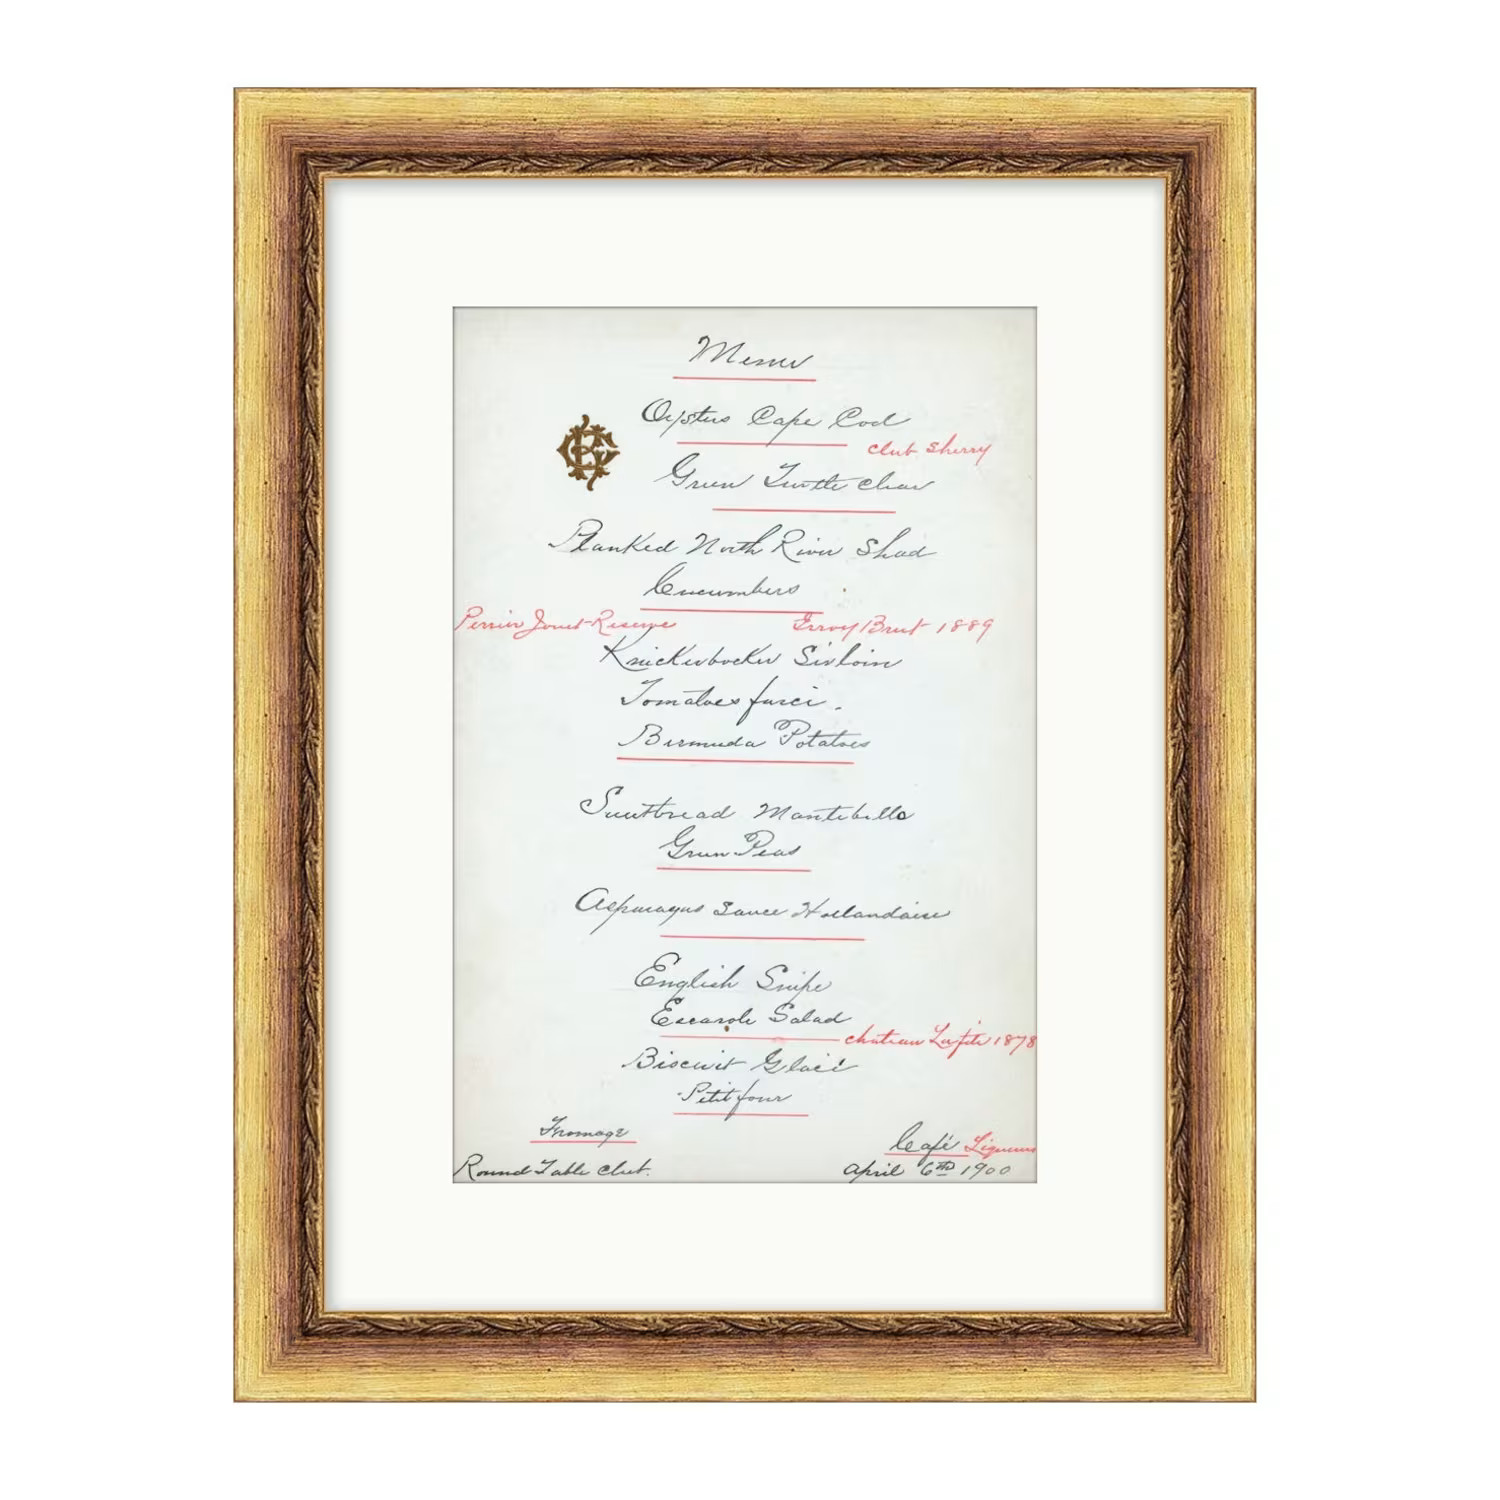 Menu
Oysters Cape Cod
Club Sherry
Green Turtle Clear
Planked North River Shad
Cucumbers
Perrier Jouet Reserve
Irroy Brut 1889
Knickerbocker Sirloin
Tomatoes farci.
Bermuda Potatoes
Sweetbread Montebello
Green Peas
Asparagus Sauce Hollandaise
English Snipe
Escarole Salad
Chateau Lafite 1878
Biscuit Glacé
Petit four
Fromage
Café Liqueurs
Round Table Club.
April 6th 1900